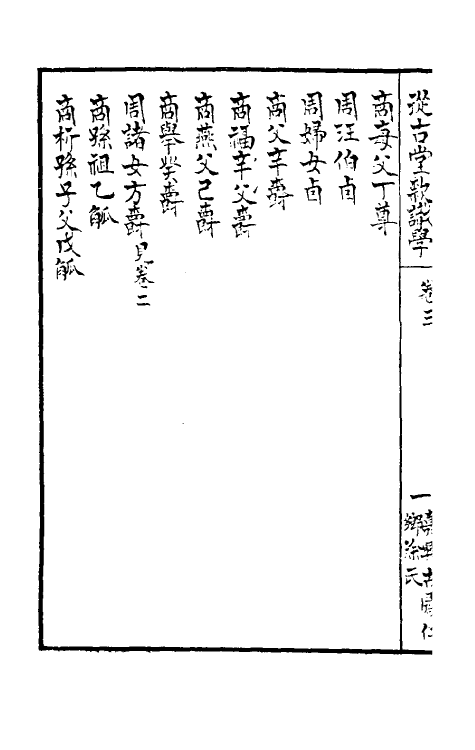 從古堂款識學
卷三
一
商母父丁尊
周汪伯卣
周婦女卣
商父辛爵
商福辛父爵
商燕父己爵
商舉癸爵
周諸女方爵見卷二
商孫祖乙觚
商析孫子父戊觚